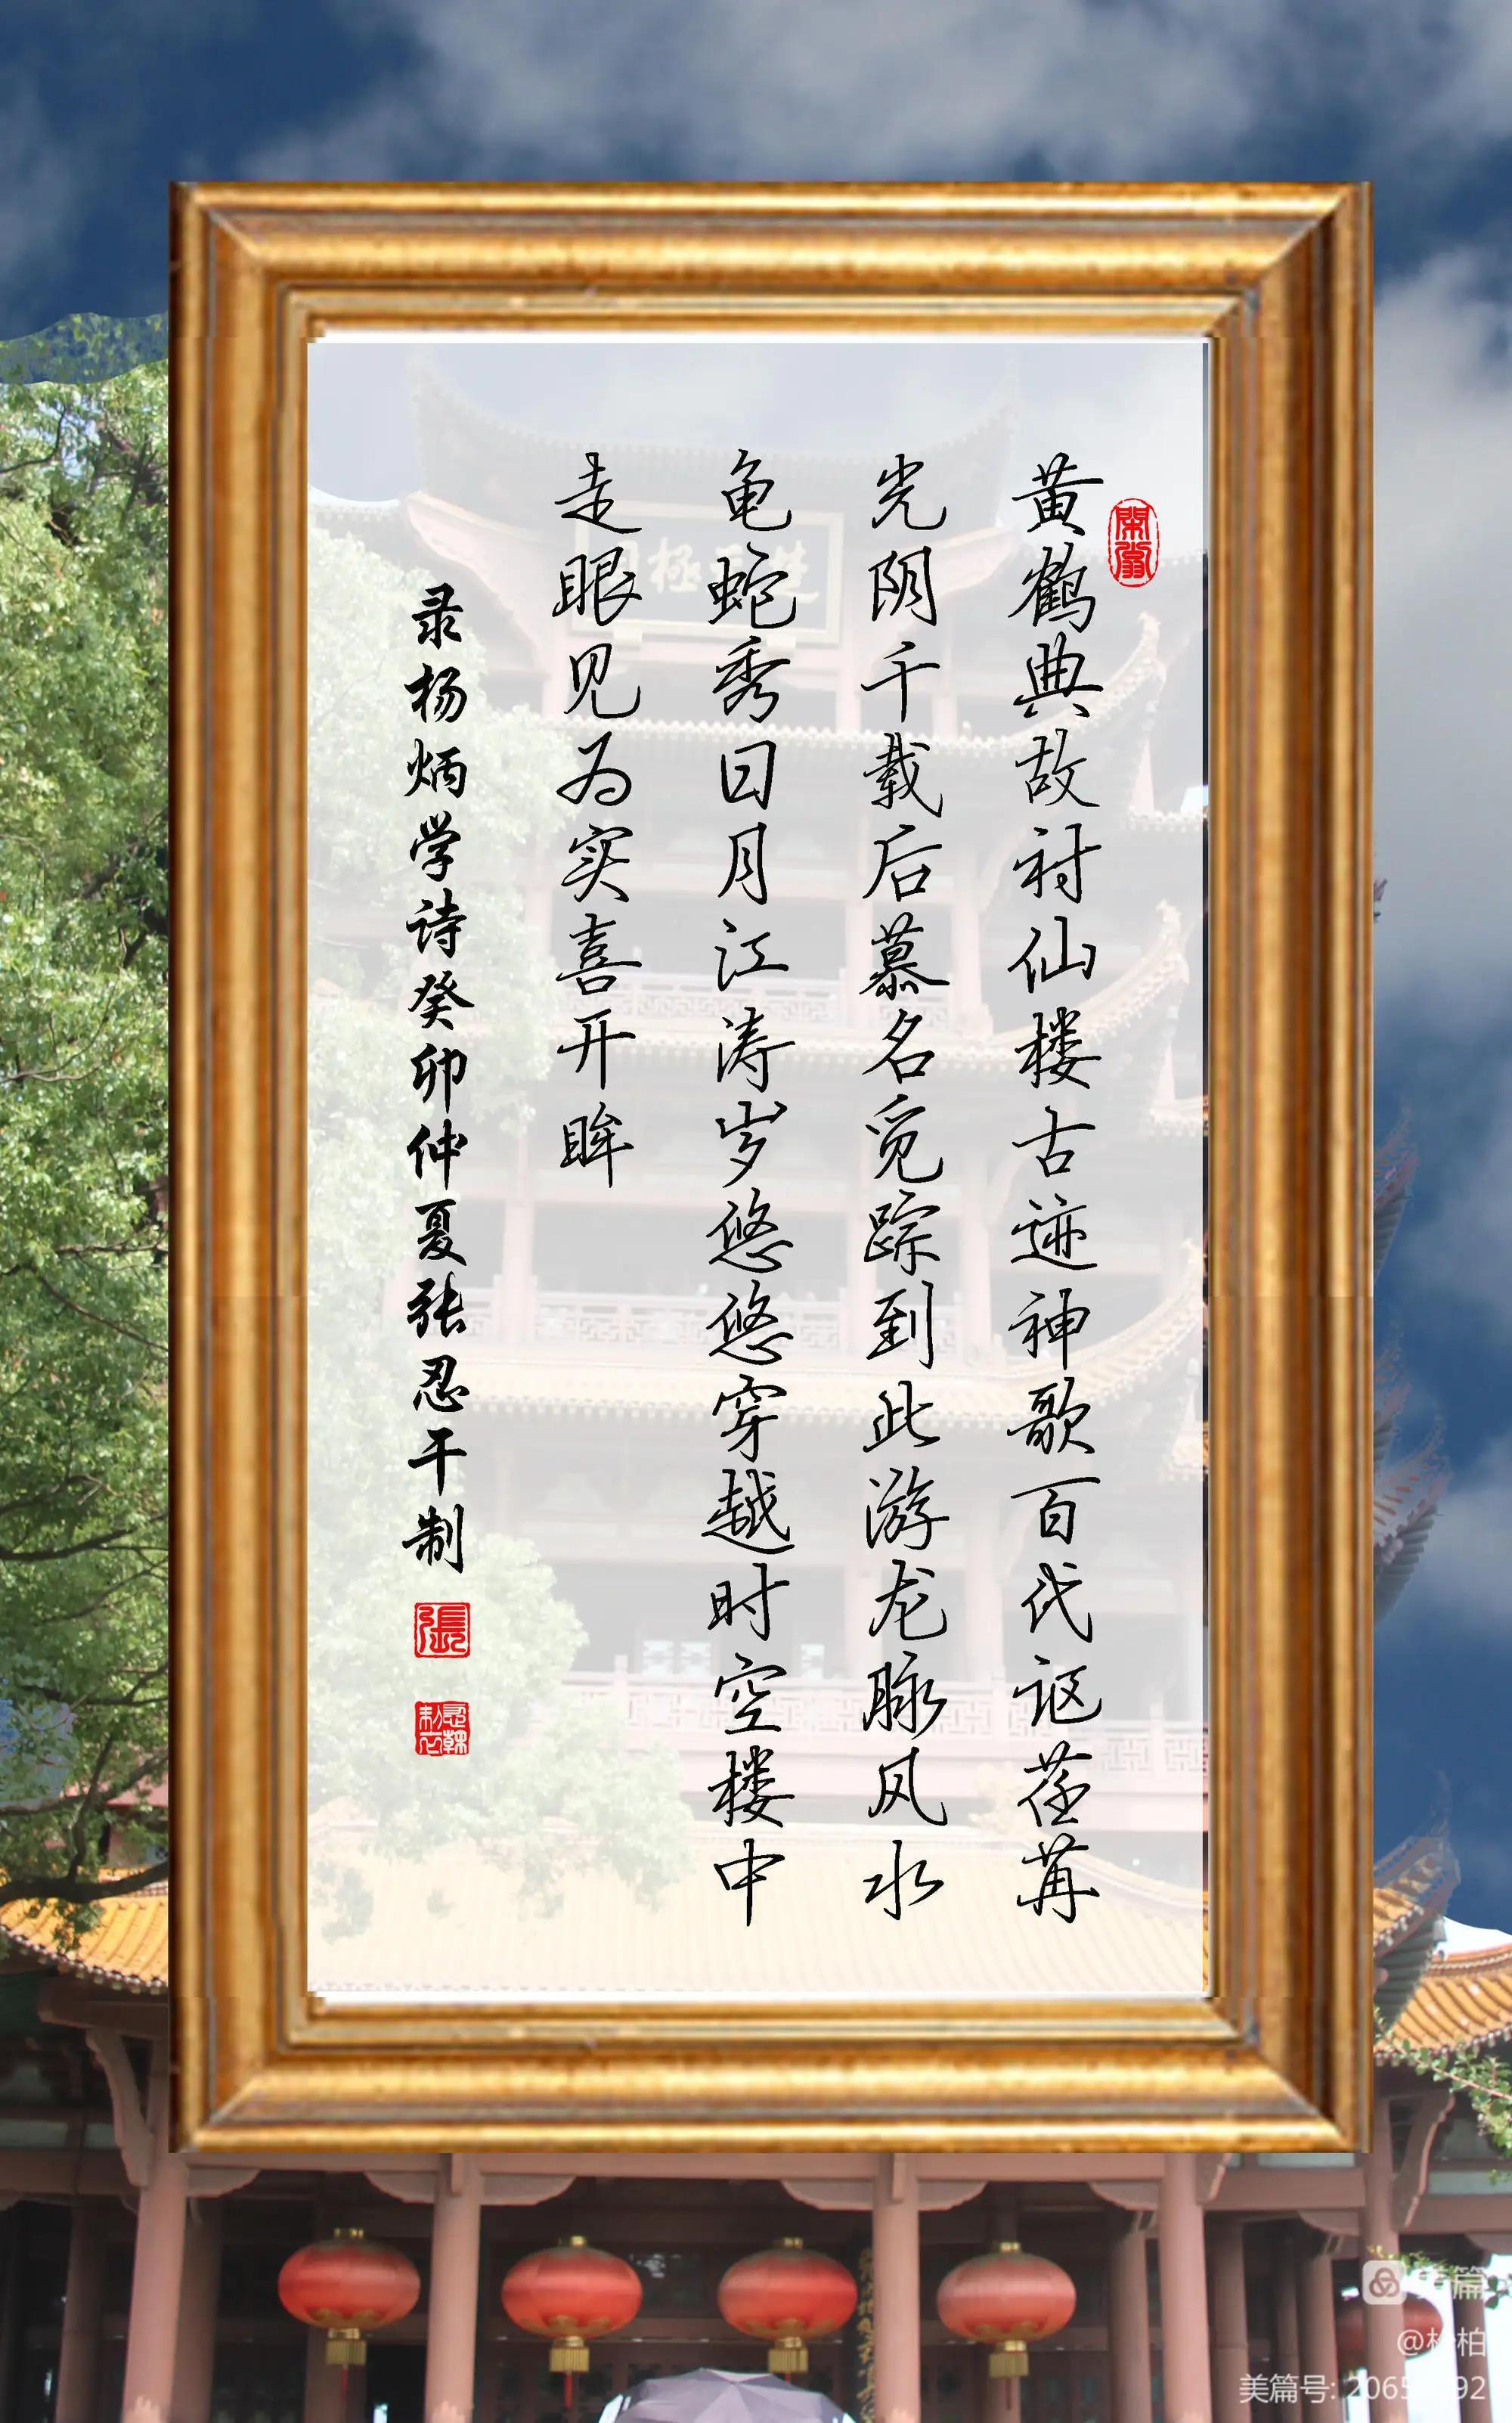 黄鹤典故衬仙楼古迹神歌百代讴荏苒
光阴千载后慕名觅踪到此游龙脉风水
龟蛇秀日月江涛岁悠悠穿越时空楼中
走眼见为实喜开眸
录杨炳学诗癸卯仲夏张忍干制
張
美篇
美篇号: